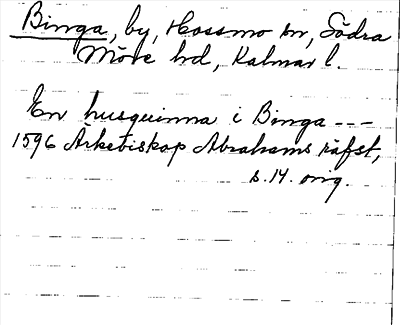 Binga, by, Hossmo sn, Södra
Möre hd, Kalmar l.
En husquinna i Binga ---
1596 Ärkebiskop Abrahams räfst,
s. 14. orig.